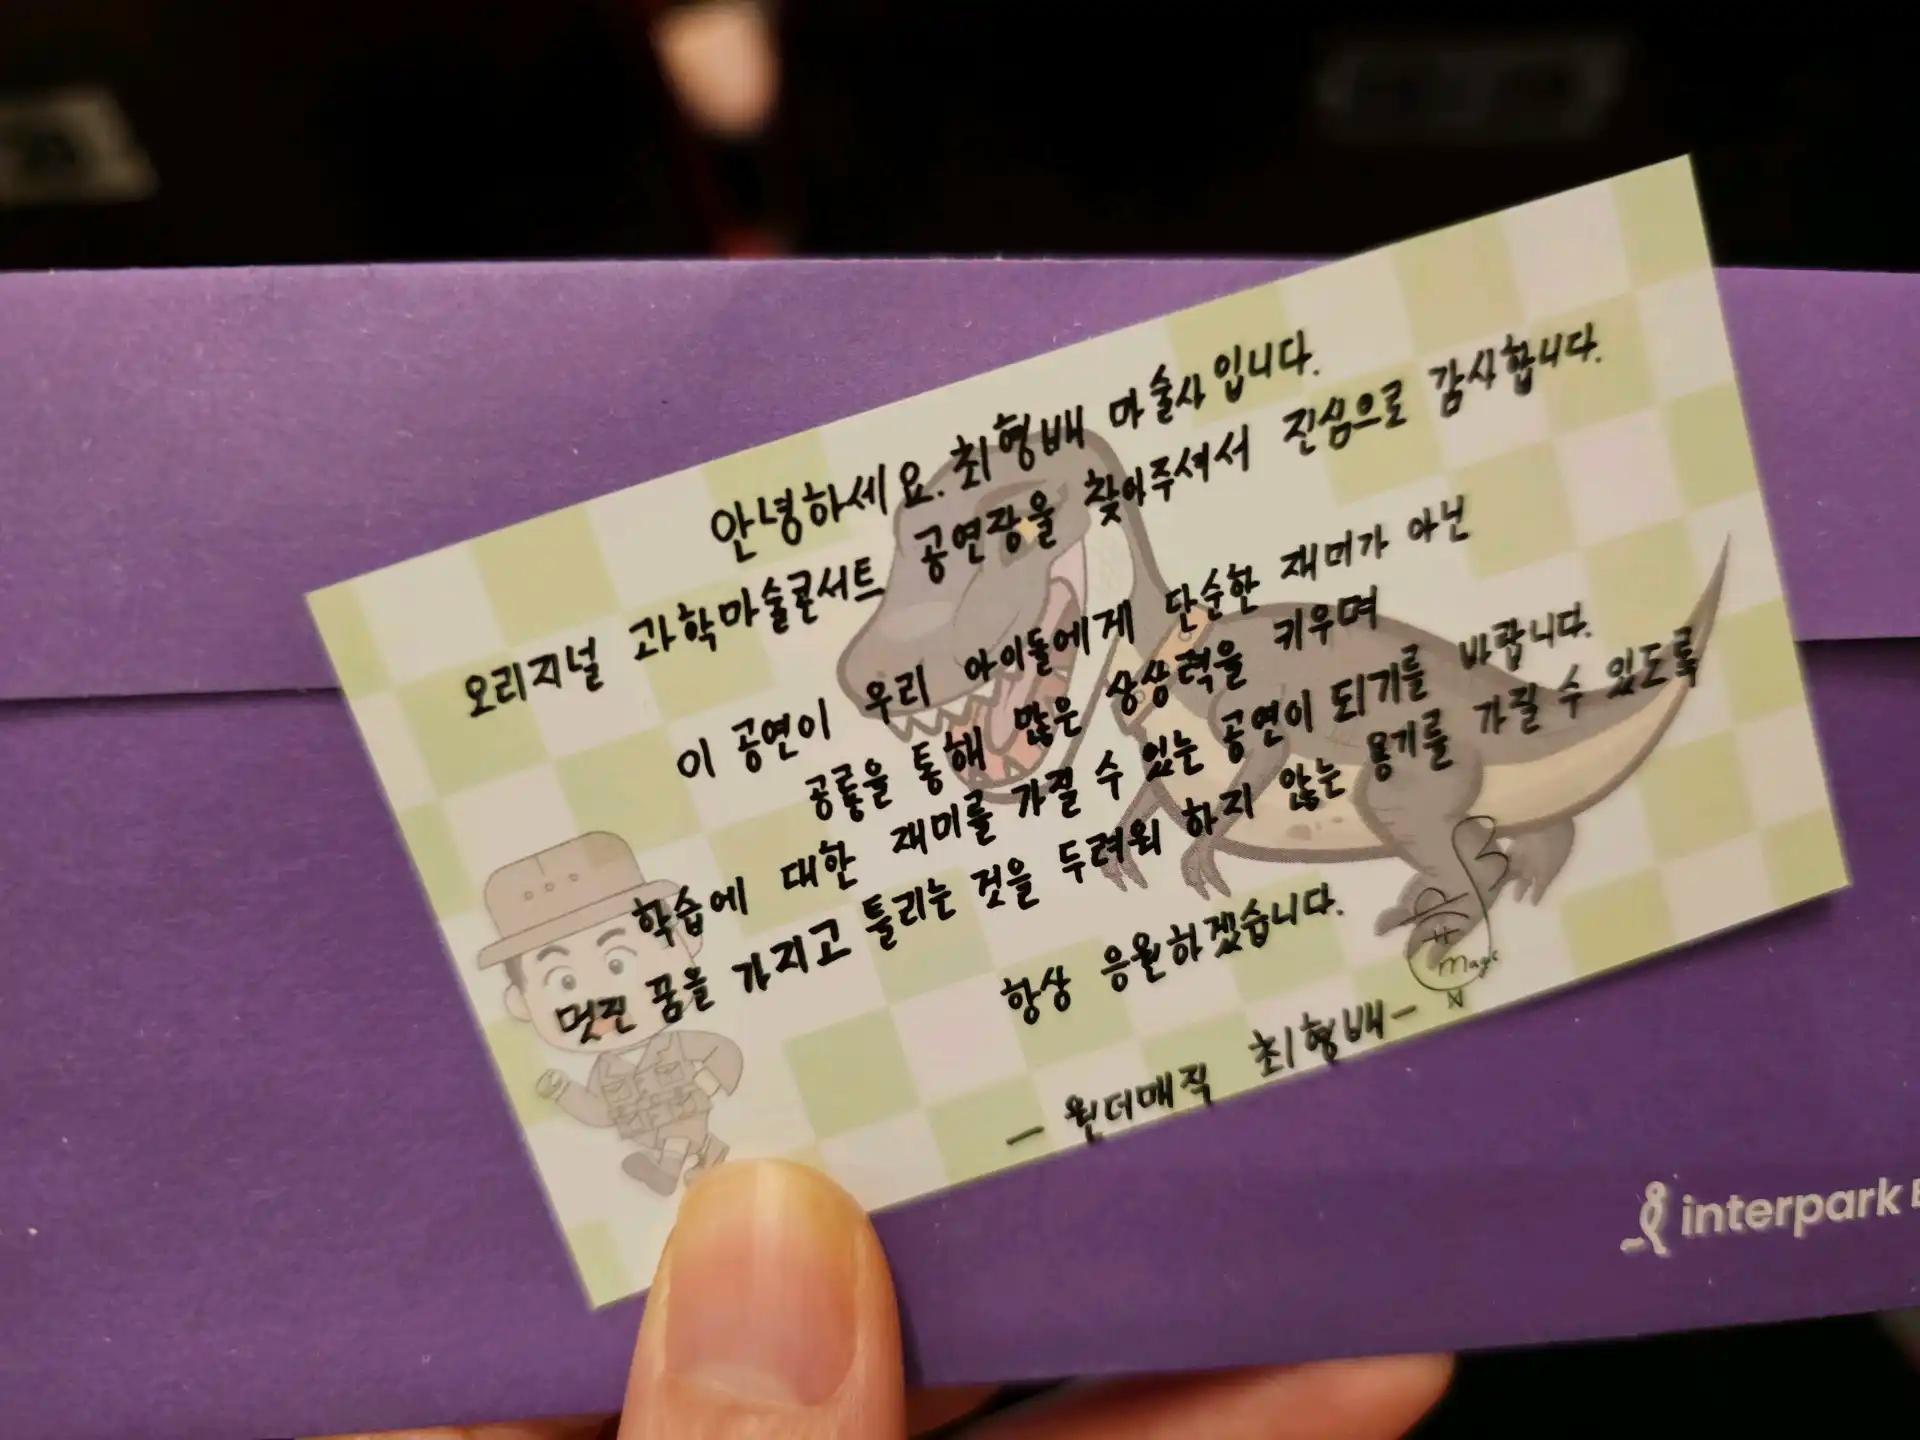 안녕하세요. 최형배 마술사입니다.
오리지널 과학마술콘서트 공연장을 찾아주셔서 진심으로 감사합니다.
이 공연이 우리 아이들에게 단순한 재미가 아닌
공룡을 통해 많은 상상력을 키우며
학습에 대한 재미를 가질 수 있는 공연이 되기를 바랍니다.
멋진 꿈을 가지고 틀리는 것을 두려워 하지 않는 용기를 가질 수 있도록
항상 응원하겠습니다.
- 원더매직 최형배 -
magic
interpark